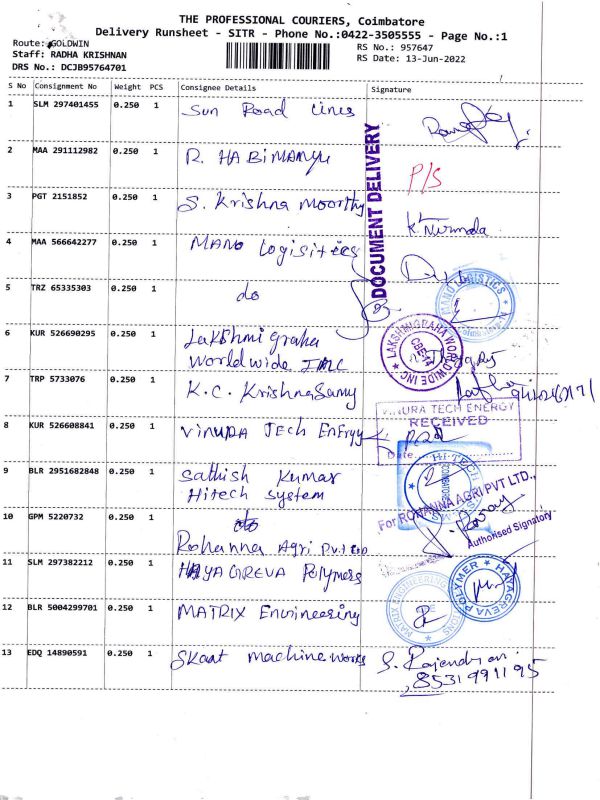 THE PROFESSIONAL COURIERS, Coimbatore
Delivery Runsheet - SITR - Phone No.:0422-3505555 - Page No.:1
Route: GOLDWIN
Staff: RADHA KRISHNAN
DRS No.: DCJB95764701
RS No.: 957647
RS Date: 13-Jun-2022
S No Consignment No Weight PCS Consignee Details Signature
1 SLM 297401455 0.250 1 Sun Road Lines
2 MAA 291112982 0.250 1 R. HABIMANYU P/S
3 PGT 2151852 0.250 1 S. Krishna Moorthy K. Nirmala
4 MAA 566642277 0.250 1 MANO Logisitics
5 TRZ 65335303 0.250 1 do
DOCUMENT DELIVERY
MANO LOGISTICS
6 KUR 526690295 0.250 1 Lakshmi graha
Worldwide INC
LAKSHMIGRAHA WORLDWIDE INC
CBE-14
7 TRP 5733076 0.250 1 K.C. KrishnaSamy
8 KUR 526608841 0.250 1 VINURA Tech Enrgyy
VINURA TECH ENERGY
RECEIVED
Date
9 BLR 2951682848 0.250 1 Sathish Kumar
Hitech System
HI-TECH
COIMBATORE
10 GPM 5220732 0.250 1
Rohanna Agri Pvt Ltd
For ROHANNA AGRI PVT LTD.,
Authorised Signatory
11 SLM 297382212 0.250 1 HAYAGREVA Polymers
HAYAGREVA POLYMER
12 BLR 5004299701 0.250 1 MATRIX Engineering
MATRIX ENGINEERING
13 EDQ 14890591 0.250 1 Skaat machine works S. Rajendran
8531991195